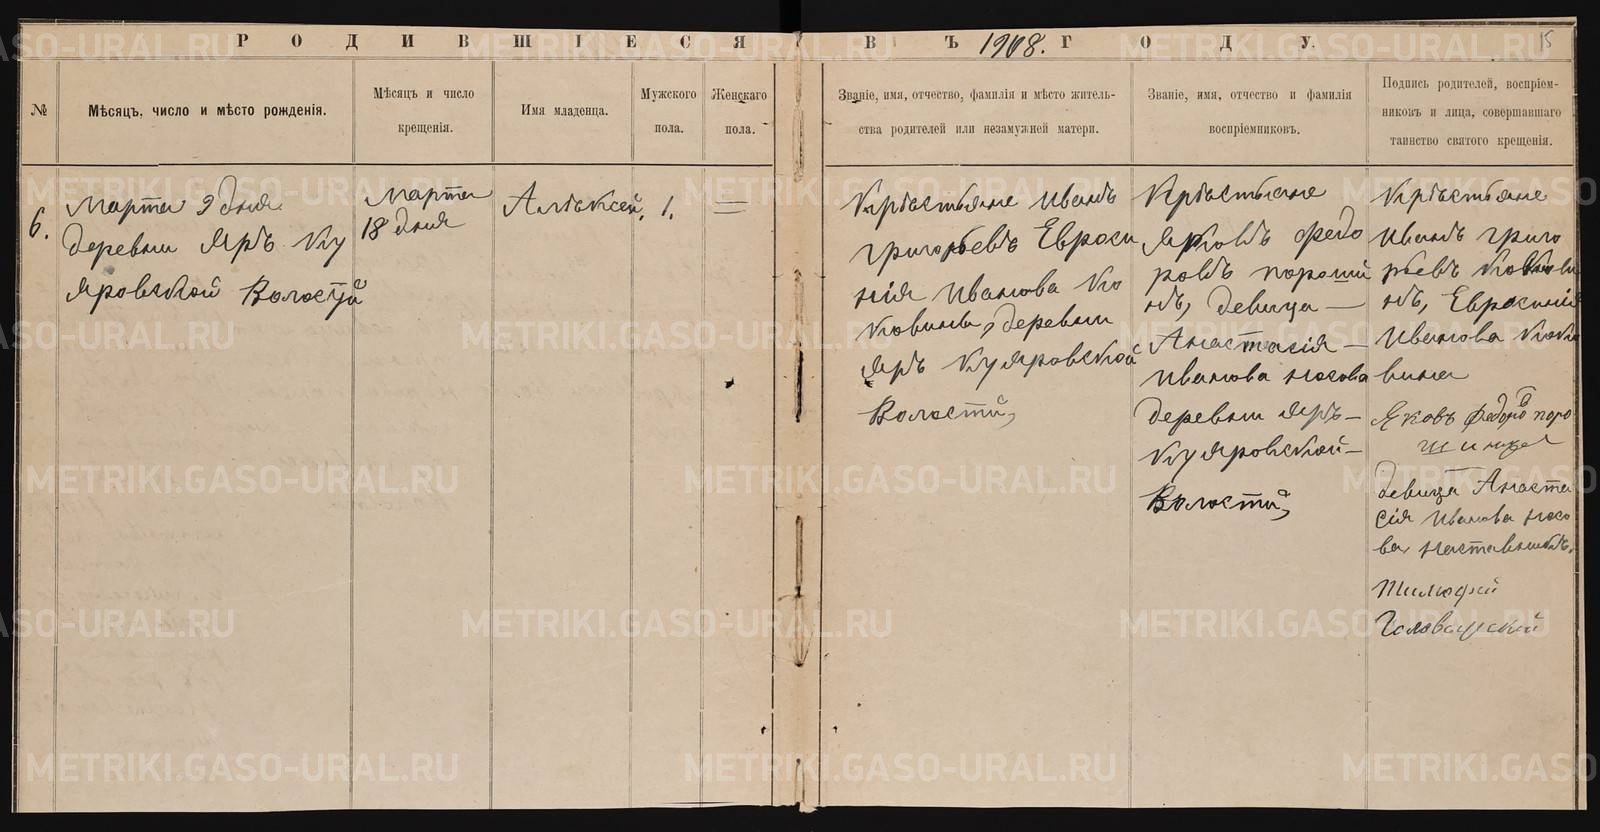 РОДИВШІЕСЯ ВЪ 1908. ГОДУ.
15
№
Мѣсяцъ, число и мѣсто рожденія.
Мѣсяцъ и число
крещенія.
Имя младенца.
Мужского
пола.
Женскаго
пола.
Званіе, имя, отчество, фамилія и мѣсто житель-
ства родителей или незамужней матери.
Званіе, имя, отчество и фамилія
воспріемниковъ.
Подпись родителей, воспріем-
никовъ и лица, совершавшаго
таинство святого крещенія.
6.
Марта 9 дня
деревни Яръ Ку
яровской Волостй
Марта
18 дня
Алѣксей,
1.
=
Крѣстьяне Иванъ
григорьевъ Евроси
нія Иванова Ко
ковины, деревни
Яръ Куяровской
Волостй,
Крѣстьяне
Яковъ Федо
ровъ порошй
нъ, девица —
Анастасія —
Иванова носова
деревни Яръ —
Куяровской —
Волостй,
Крѣстьяне
Иванъ григо
рьевъ Кокови
нъ, Евросинія
Иванова Коко
вина
Яковъ Федоровъ поро
шинъ
девица Анаста
сія Иванова носо
ва, наставникъ,
Тимофей
METRIKI.GASO-URAL.RU